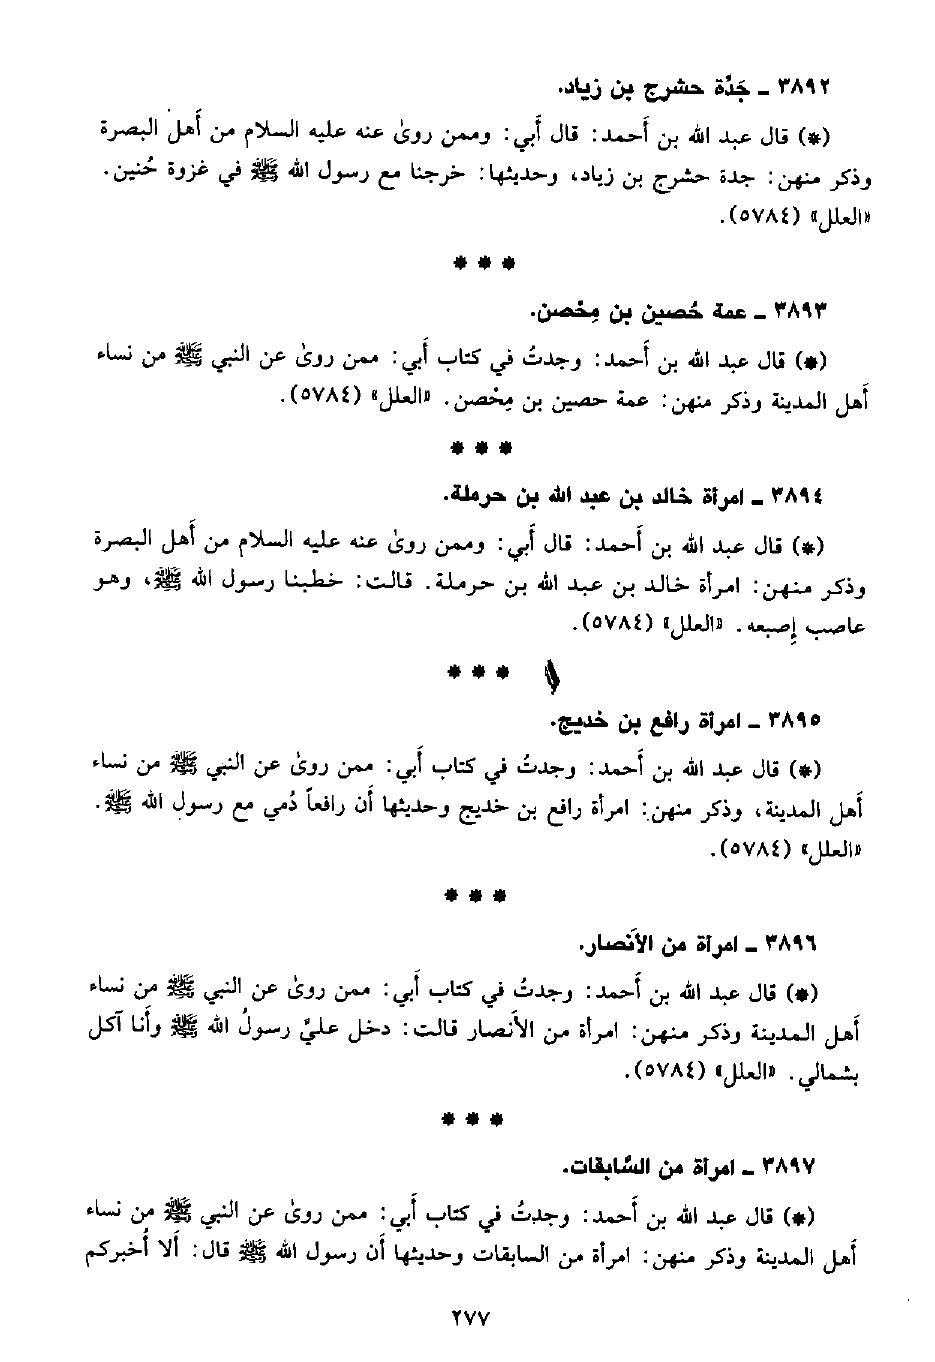 ٣٨٩٢ ـ جَدَّة حشرج بن زياد.
(*) قال عبد الله بن أَحمد: قال أَبي: وممن روىٰ عنه عليه السلام من أَهل البصرة
وذكر منهن: جدة حشرج بن زياد، وحديثها: خرجنا مع رسول الله ﷺ في غزوة حُنين.
«العلل» (٥٧٨٤).
* * *
٣٨٩٣ ـ عمة حُصين بن مِحْصن.
(*) قال عبد الله بن أَحمد: وجدتُ في كتاب أَبي: ممن روىٰ عن النبي ﷺ من نساء
أَهل المدينة وذكر منهن: عمة حصين بن مِحْصن. «العلل» (٥٧٨٤).
* * *
٣٨٩٤ ـ امرأة خالد بن عبد الله بن حرملة.
(*) قال عبد الله بن أَحمد: قال أَبي: وممن روىٰ عنه عليه السلام من أَهل البصرة
وذكر منهن: امرأة خالد بن عبد الله بن حرملة. قالت: خطبنا رسول الله ﷺ، وهو
عاصب إِصبعه. «العلل» (٥٧٨٤).
* * *
٣٨٩٥ ـ امرأة رافع بن خديج.
(*) قال عبد الله بن أَحمد: وجدتُ في كتاب أَبي: ممن روىٰ عن النبي ﷺ من نساء
أَهل المدينة، وذكر منهن: امرأة رافع بن خديج وحديثها أَن رافعاً دُمي مع رسول الله ﷺ.
«العلل» (٥٧٨٤).
* * *
٣٨٩٦ ـ امرأة من الأَنصار.
(*) قال عبد الله بن أَحمد: وجدتُ في كتاب أَبي: ممن روىٰ عن النبي ﷺ من نساء
أَهل المدينة وذكر منهن: امرأة من الأَنصار قالت: دخل عليَّ رسولُ الله ﷺ وأَنا آكل
بشمالي. «العلل» (٥٧٨٤).
* * *
٣٨٩٧ ـ امرأة من السَّابقات.
(*) قال عبد الله بن أَحمد: وجدتُ في كتاب أَبي: ممن روىٰ عن النبي ﷺ من نساء
أَهل المدينة وذكر منهن: امرأة من السابقات وحديثها أَن رسول الله ﷺ قال: أَلا أُخبركم
٢٧٧